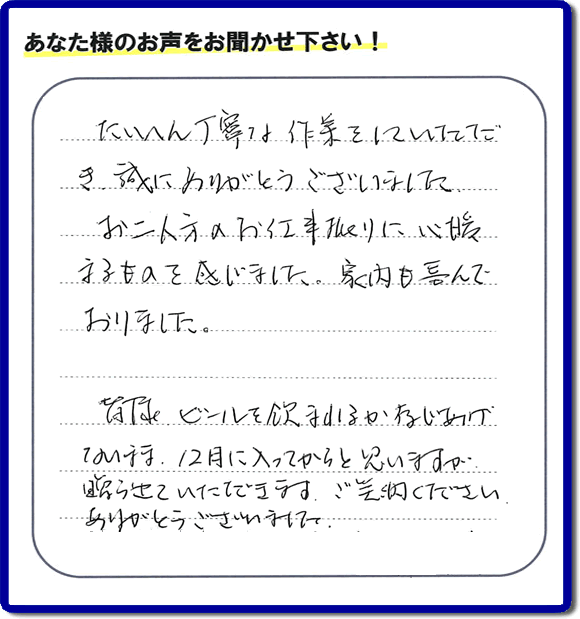 あなた様のお声をお聞かせ下さい！
たいへん丁寧な作業をしていただ
き、誠にありがとうございました。
お二人方のお仕事振りに、心暖
まるものを感じました。家内も喜んで
おりました。
皆様ビールを飲まれるか存じあげ
ないまま、12月に入ってからと思いますが、
贈らせていただきます。ご笑納ください。
ありがとうございました。